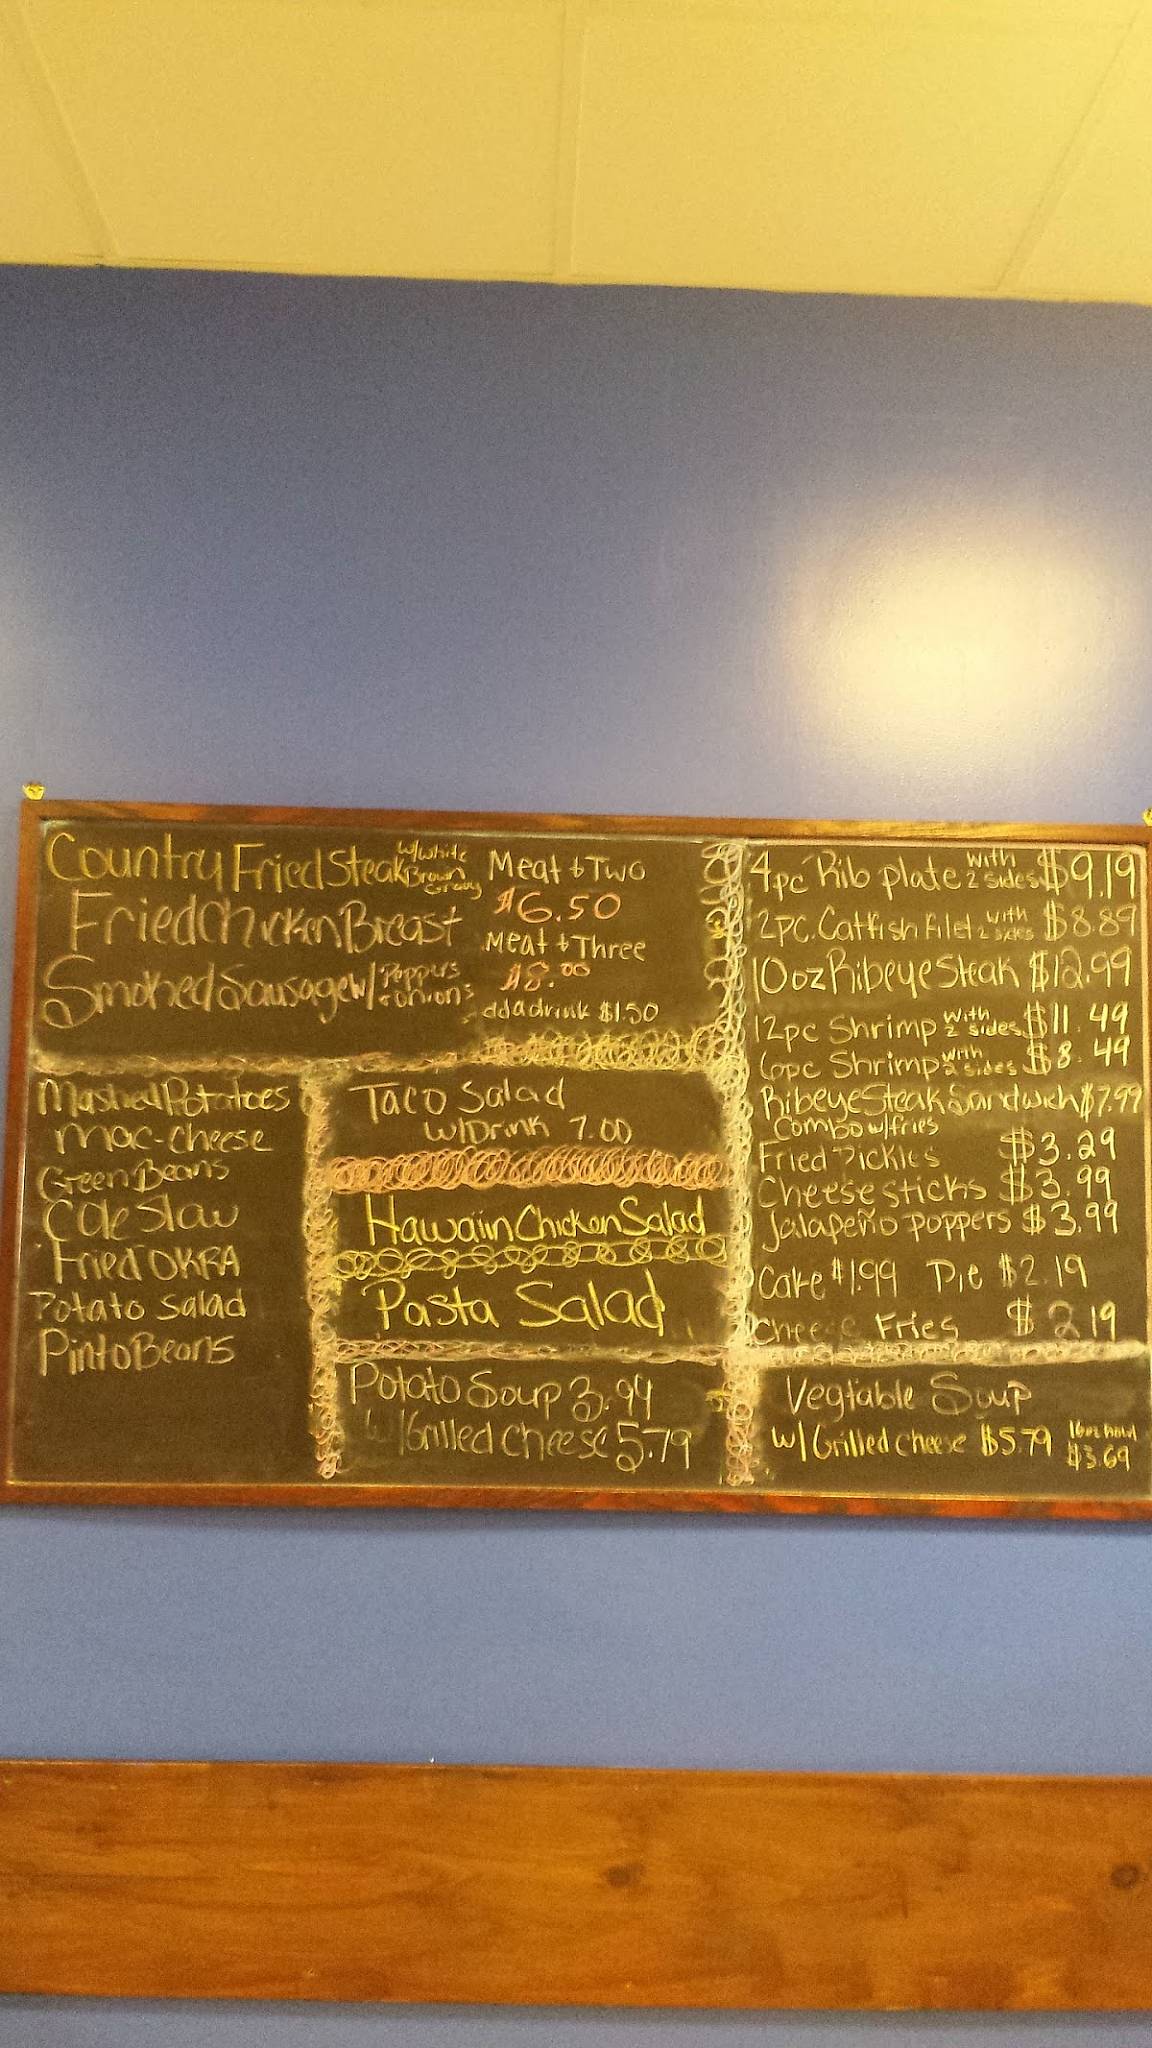 Country Fried Steak w/white Brown Gravy
Fried Chicken Breast
Smoked Sausage w/ Peppers + onions
Meat + Two
$6.50
Meat + Three
$8.00
add a drink $1.50
Mashed Potatoes
Mac-Cheese
Green Beans
Cole Slaw
Fried OKRA
Potato Salad
Pinto Beans
Taco Salad
w/Drink 7.00
Hawaiin Chicken Salad
Pasta Salad
Potato Soup 3.99
w/Grilled Cheese 5.79
4pc Rib plate with 2 sides $9.19
2pc. Catfish Filet with 2 sides $8.89
10oz Ribeye Steak $12.99
12pc Shrimp with 2 sides $11.49
6pc Shrimp with 2 sides $8.49
Ribeye Steak Sandwich $7.99
Combo w/fries
Fried Pickles $3.29
Cheese sticks $3.99
Jalapeño poppers $3.99
Cake $1.99 Pie $2.19
Cheese Fries $2.19
Vegtable Soup
w/Grilled Cheese $5.79 16oz bowl
$3.69